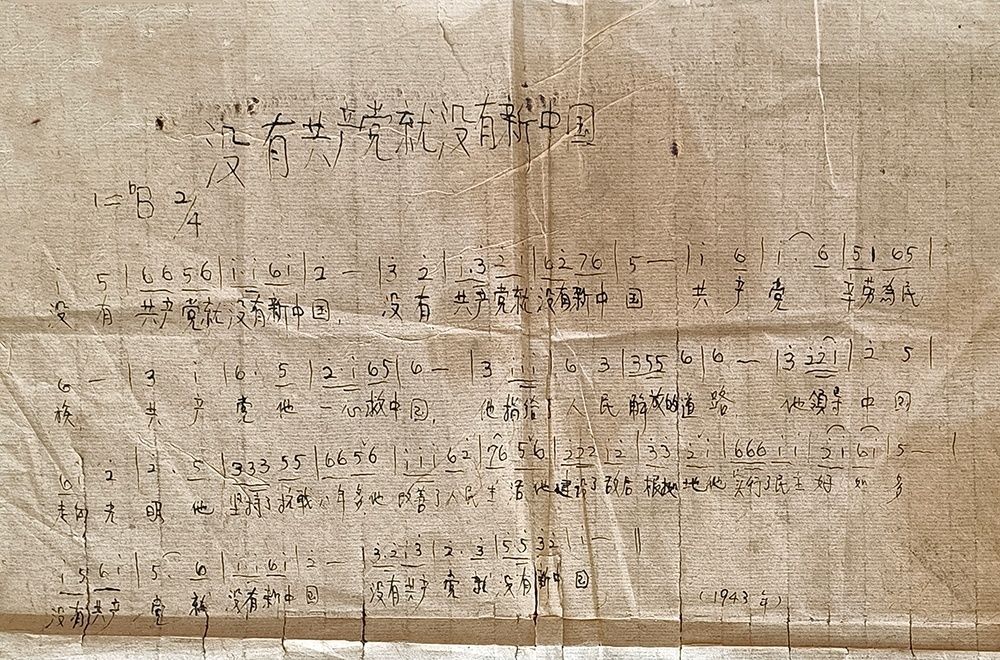 没有共产党就没有新中国
1=ᵇB 2/4
i 5 | 6 6 5 6 | i i 6 i | 2̇ — | 3̇ 2̇ | i 3̇ 2̇ i | 6 2̇ 7 6 | 5 — | i 6 | i · 6 | 5 1 6 5 |
没有共产党就没有新中国, 没有共产党就没有新中国 共产党 辛劳為民
6 — | 3 i | 6 · 5 | 2̇ i 6 5 | 6 — | 3 i i | 6 3 | 3 5 5 6 | 6 — | 3̇ 2̇ 2̇ i | 2̇ 5 |
族, 共产党他一心救中国, 他指给了人民解放的道路 他領导中国
6 i 2̇ | 2̇ · 5 | 3 3 3 5 5 | 6 6 5 6 | i i i 6 2̇ | 7 6 5 6 | 2̇ 2̇ 2̇ i 2̇ | 3̇ 3̇ 2̇ i | 6 6 6 i i | 2̇ i 6 i | 5 — |
走向光明他坚持了抗战八年多他改善了人民生活他建设了敌后根据地他实行了民主好如多
i 5 6 i | 5 · 6 | i i 6 i | 2̇ — | 3̇ · 2̇ i 3̇ | 2̇ · 3̇ | 5 5 3̇ 2̇ | i — ‖
没有共产党就没有新中国 没有共产党就没有新中国
(1943年)